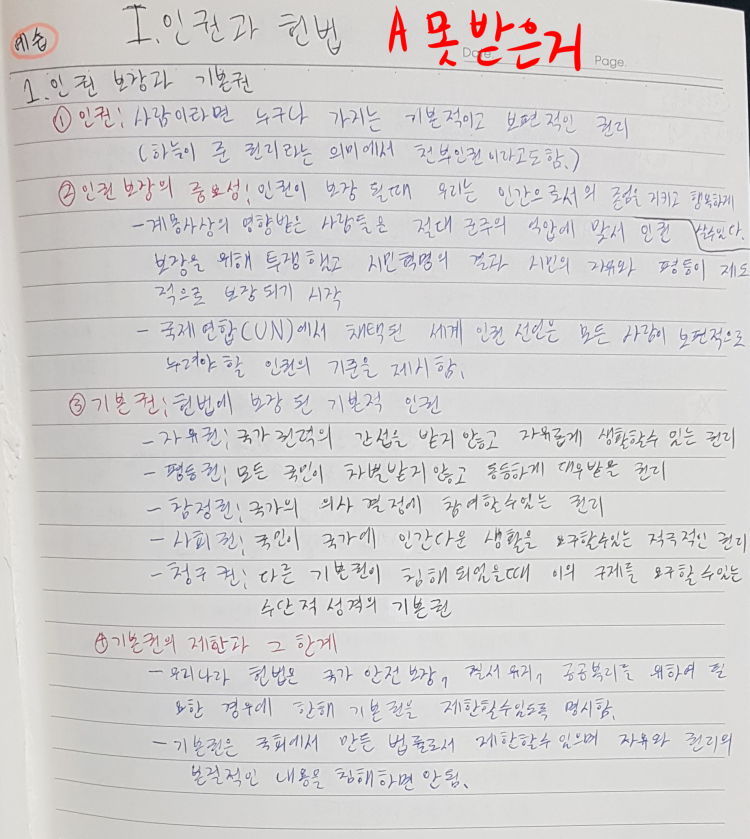 예습
I. 인권과 헌법
A 못 받은거
Date.
Page.
1. 인권 보장과 기본권
① 인권; 사람이라면 누구나 가지는 기본적이고 보편적인 권리
(하늘이 준 권리라는 의미에서 천부인권이라고도함.)
② 인권 보장의 중요성; 인권이 보장 될때 우리는 인간으로서의 존엄을 지키고 행복하게
살수있다.
- 계몽사상의 영향받은 사람들은 절대 군주의 억압에 맞서 인권
보장을 위해 투쟁했고 시민혁명의 결과 시민의 자유와 평등이 제도
적으로 보장되기 시작
- 국제연합(UN)에서 채택된 세계 인권 선언은 모든 사람이 보편적으로
누려야 할 인권의 기준을 제시함.
③ 기본권; 헌법에 보장 된 기본적 인권
- 자유권; 국가 권력의 간섭을 받지 않고 자유롭게 생활할수 있는 권리
- 평등권; 모든 국민이 차별받지 않고 동등하게 대우받을 권리
- 참정권; 국가의 의사 결정에 참여할수있는 권리
- 사회권; 국민이 국가에 인간다운 생활을 요구할수있는 적극적인 권리
- 청구권; 다른 기본권이 침해 되었을때 이의 구제를 요구할수있는
수단적 성격의 기본권
④ 기본권의 제한과 그 한계
- 우리나라 헌법은 국가 안전 보장, 질서 유지, 공공복리를 위하여 필
요한 경우에 한해 기본권을 제한할수있도록 명시함.
- 기본권은 국회에서 만든 법률로서 제한할수있으며 자유와 권리의
본질적인 내용을 침해하면 안됨.